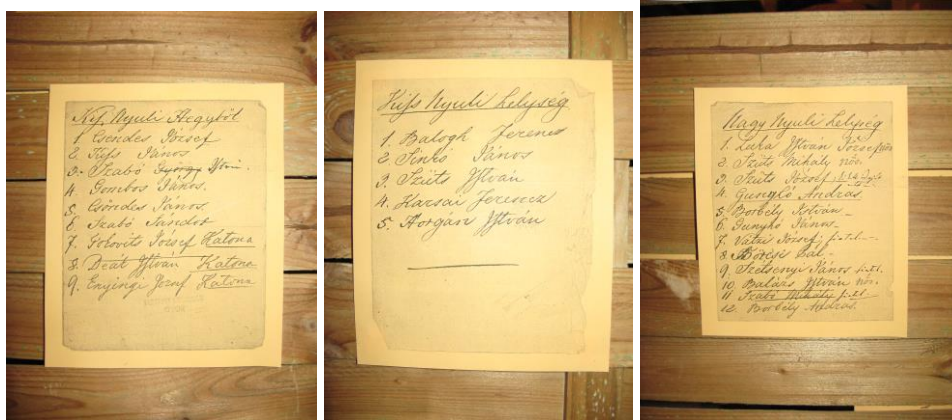 Kis Nyuli Hegyböl
1. Csendes József
2. Kiss János
3. Szabó György Istvá
4. Gombos János.
5. Csöndes János.
6. Szabó Sándor
7. József Katona
8. Deát István Katona
9. Enyingi József Katona
Kiss Nyuli helység
1. Balogh Ferencz
2. Sinkó János
3. Szüts István
4. Karsai Ferencz
5. Horgán István
Nagy Nyuli helység
1. Luka István József
2. Szüts Mihaly nös.
3. Szüts József
4. András
5. Borbély István
6. Gunyhó János
7. Vatzi József
8. Pál
9. Szetsenyi János
10. Balázs István nös.
11. Szabó Mihály
12. Borbély András.